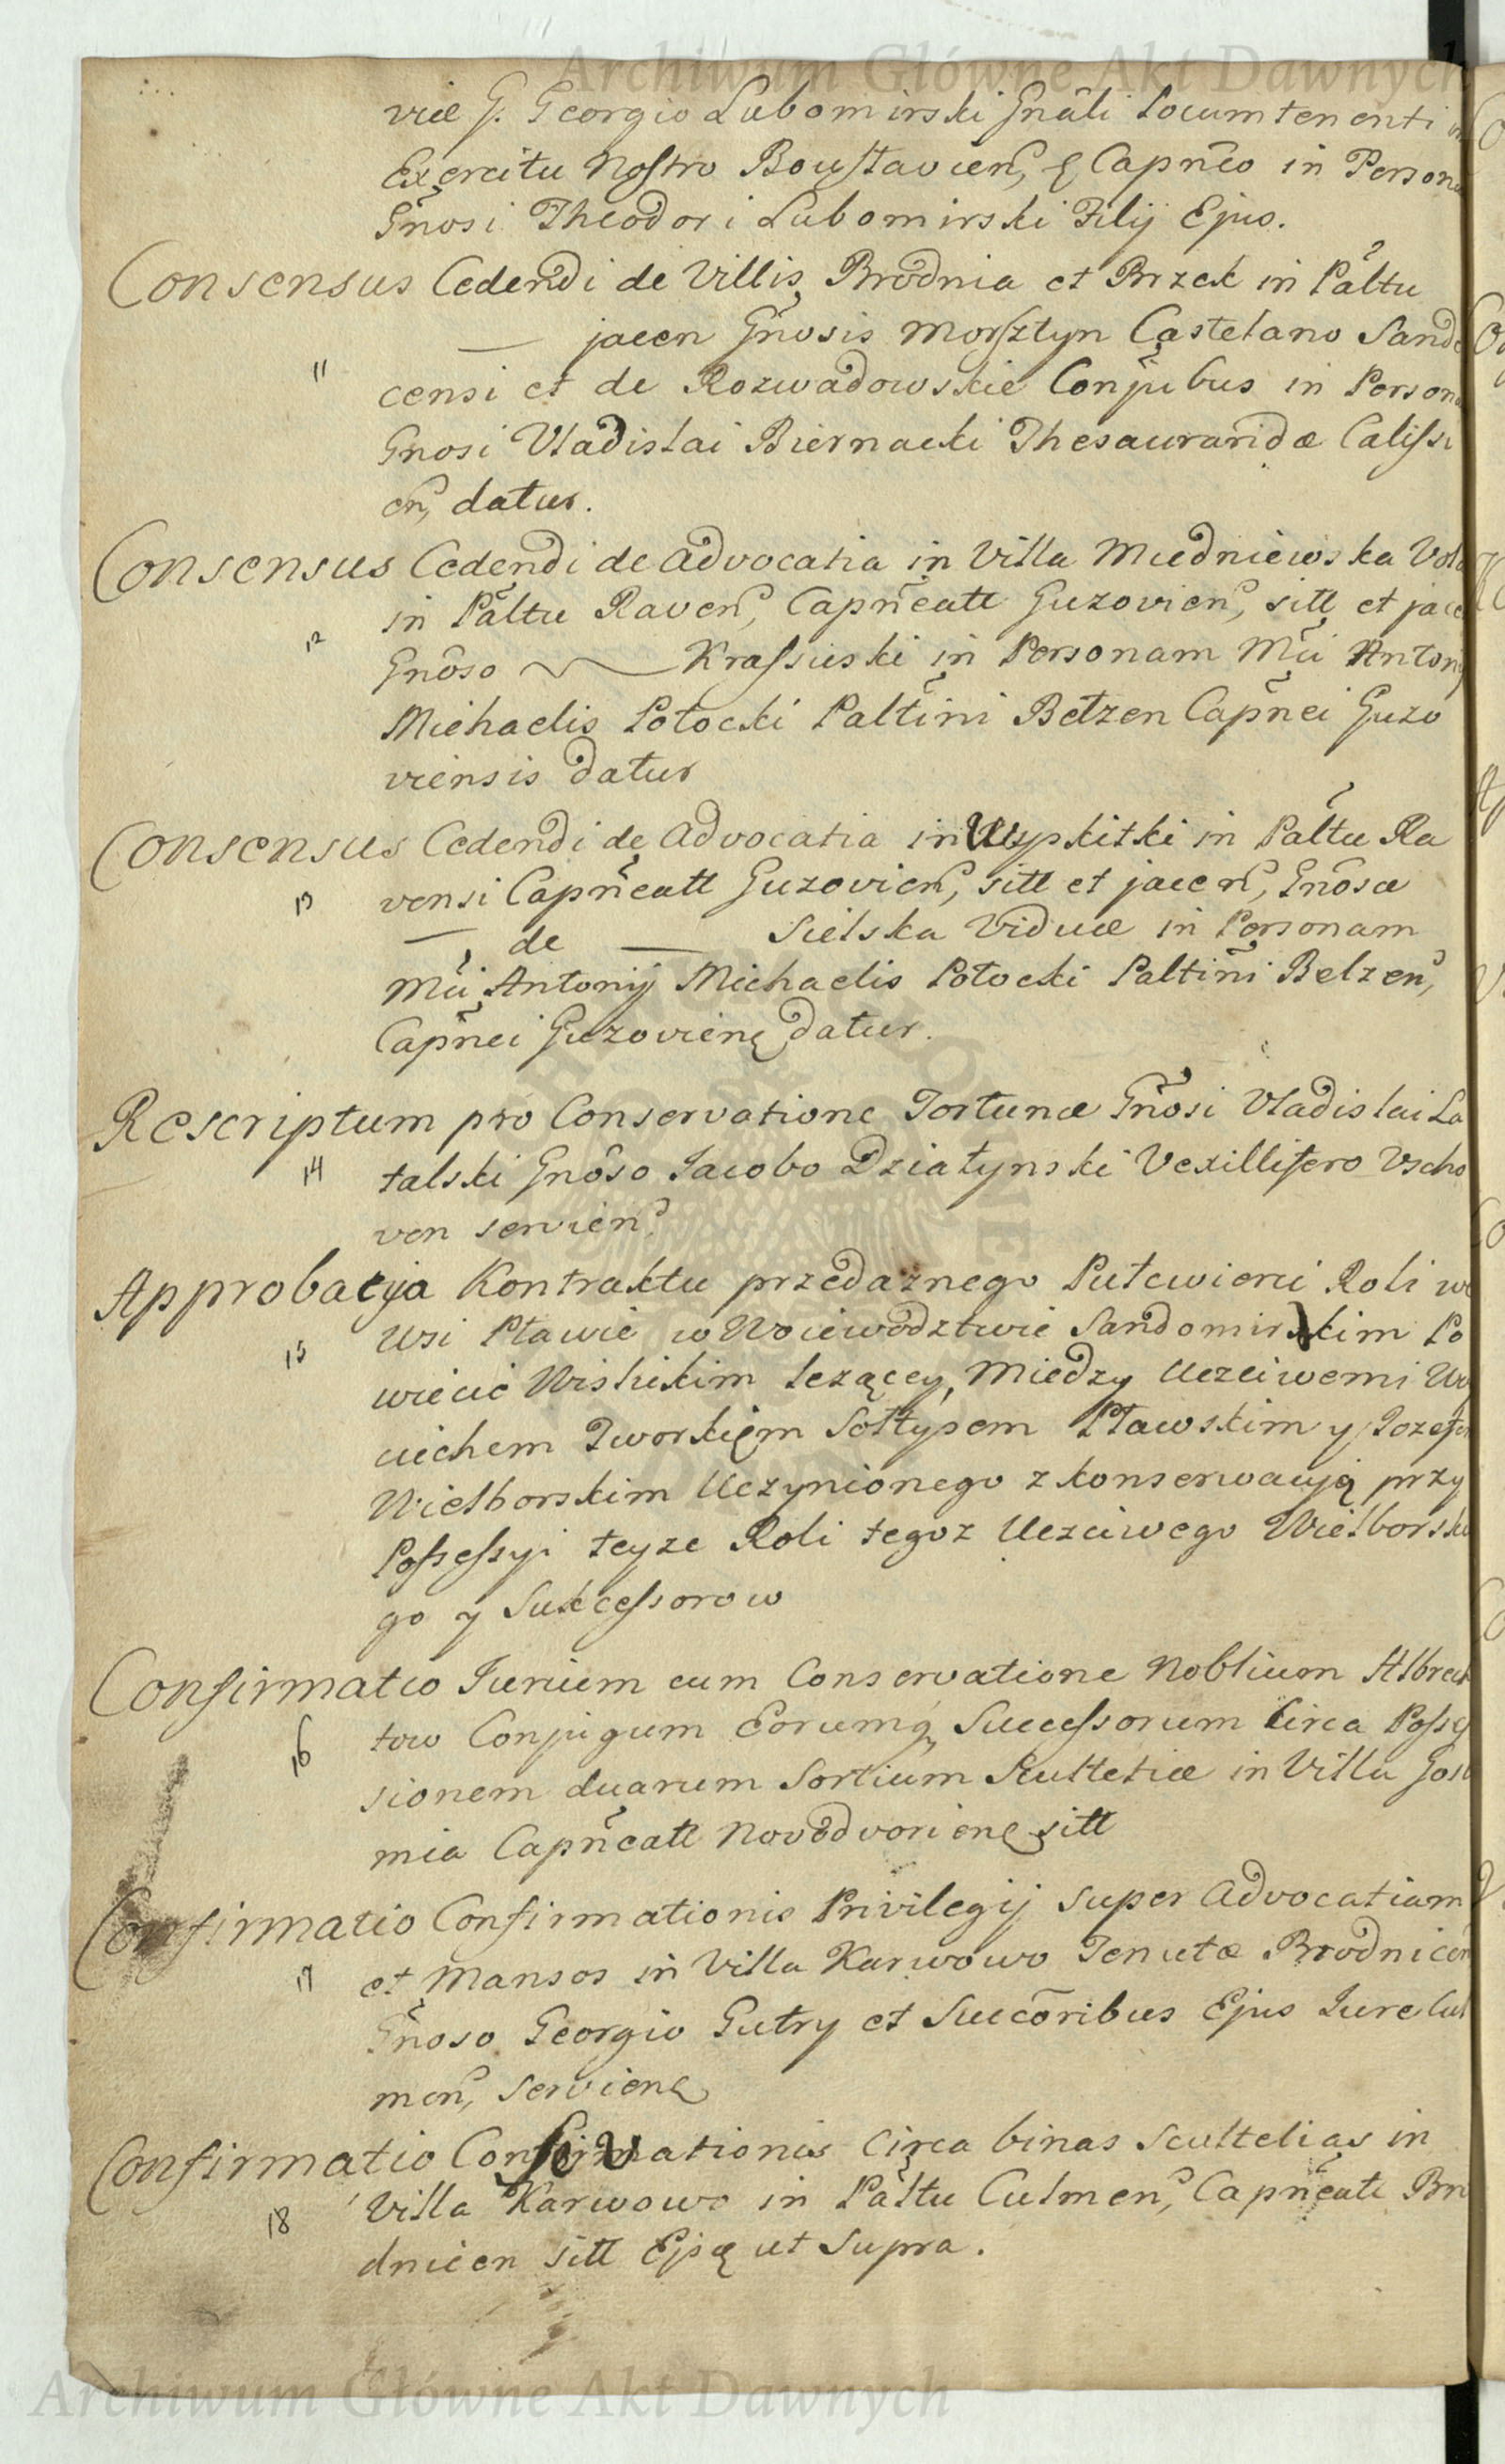 Archiwum Główne Akt Dawnych
viæ G. Georgio Lubomirski Gnãli Locumtenenti in
Exercitu Nostro Boustavien, Capnẽo in Person
Gnosi Theodori Lubomirski Filij Ejus.
Consensus Cedendi de Villis Brodnia et Brzek in Paltu
— jacen Gnosis Morsztyn Castelano Sande
11 censi et de Rozwadowskie Conjubus in Person
Gnosi Vladislai Biernacki Thesauraridæ Calissi
en, datur.
Consensus Cedendi de Advocatia in Villa Miedniewska Vola
in Paltu Raven, Capneatt Guzovien, sitt et jace
12 Gnoso — Krassuski in Personam Mci Antonij
Michaelis Potocki Paltini Betzen Capnei Guzo
viensis datur
Consensus Cedendi de Advocatia in Wypkitki in Paltu Ra
13 vensi Capneatt Guzovien, sitt et jacen, Gnosæ
— de — Sielska Viduæ in Personam
Mci Antonij Michaelis Potocki Paltini Belzen,
Capnei Guzovien datur.
Rescriptum pro Conservatione Fortunæ Gnosi Vladislai La
14 talski Gnoso Jacobo Dziatynski Vexillifero Vscho
ven servien
Approbacyja Kontraktu przedaznego Putewierci Roli we
15 Wsi Pławie w Woiewodztwie Sandomirskim Po
wiecie Wislickim lezącey, Miedzy Uczciwemi Wo
ciechem Dworskiem Sołtysem Pławskim y Jozefem
Wielborskim Uczynionego z konserwacyją przy
Possessyi teyze Roli tegoz Uczciwego Wielborskie
go y Sukcessorow
Confirmatio Jurium cum Conservatione Noblium Albrech
16 tow Conjugum Eorumq Successorum Circa Posses
sionem duarum Sortium Scultetiæ in Villa Gost
mia Capneatt Novodvorien sitt
Confirmatio Confirmationis Privilegij super Advocatiam
17 et Mansos in Villa Karwowo Tenutæ Brodnicen
Gnoso Georgio Gutry et Succoribus Ejus Jure Cul
men, Servien
Confirmatio Conservationis Circa binas Scultetias in
18 Villa Karwowo in Paltu Culmen, Capneatt Bro
dnicen sitt Ejsq ut Supra.
Archiwum Główne Akt Dawnych